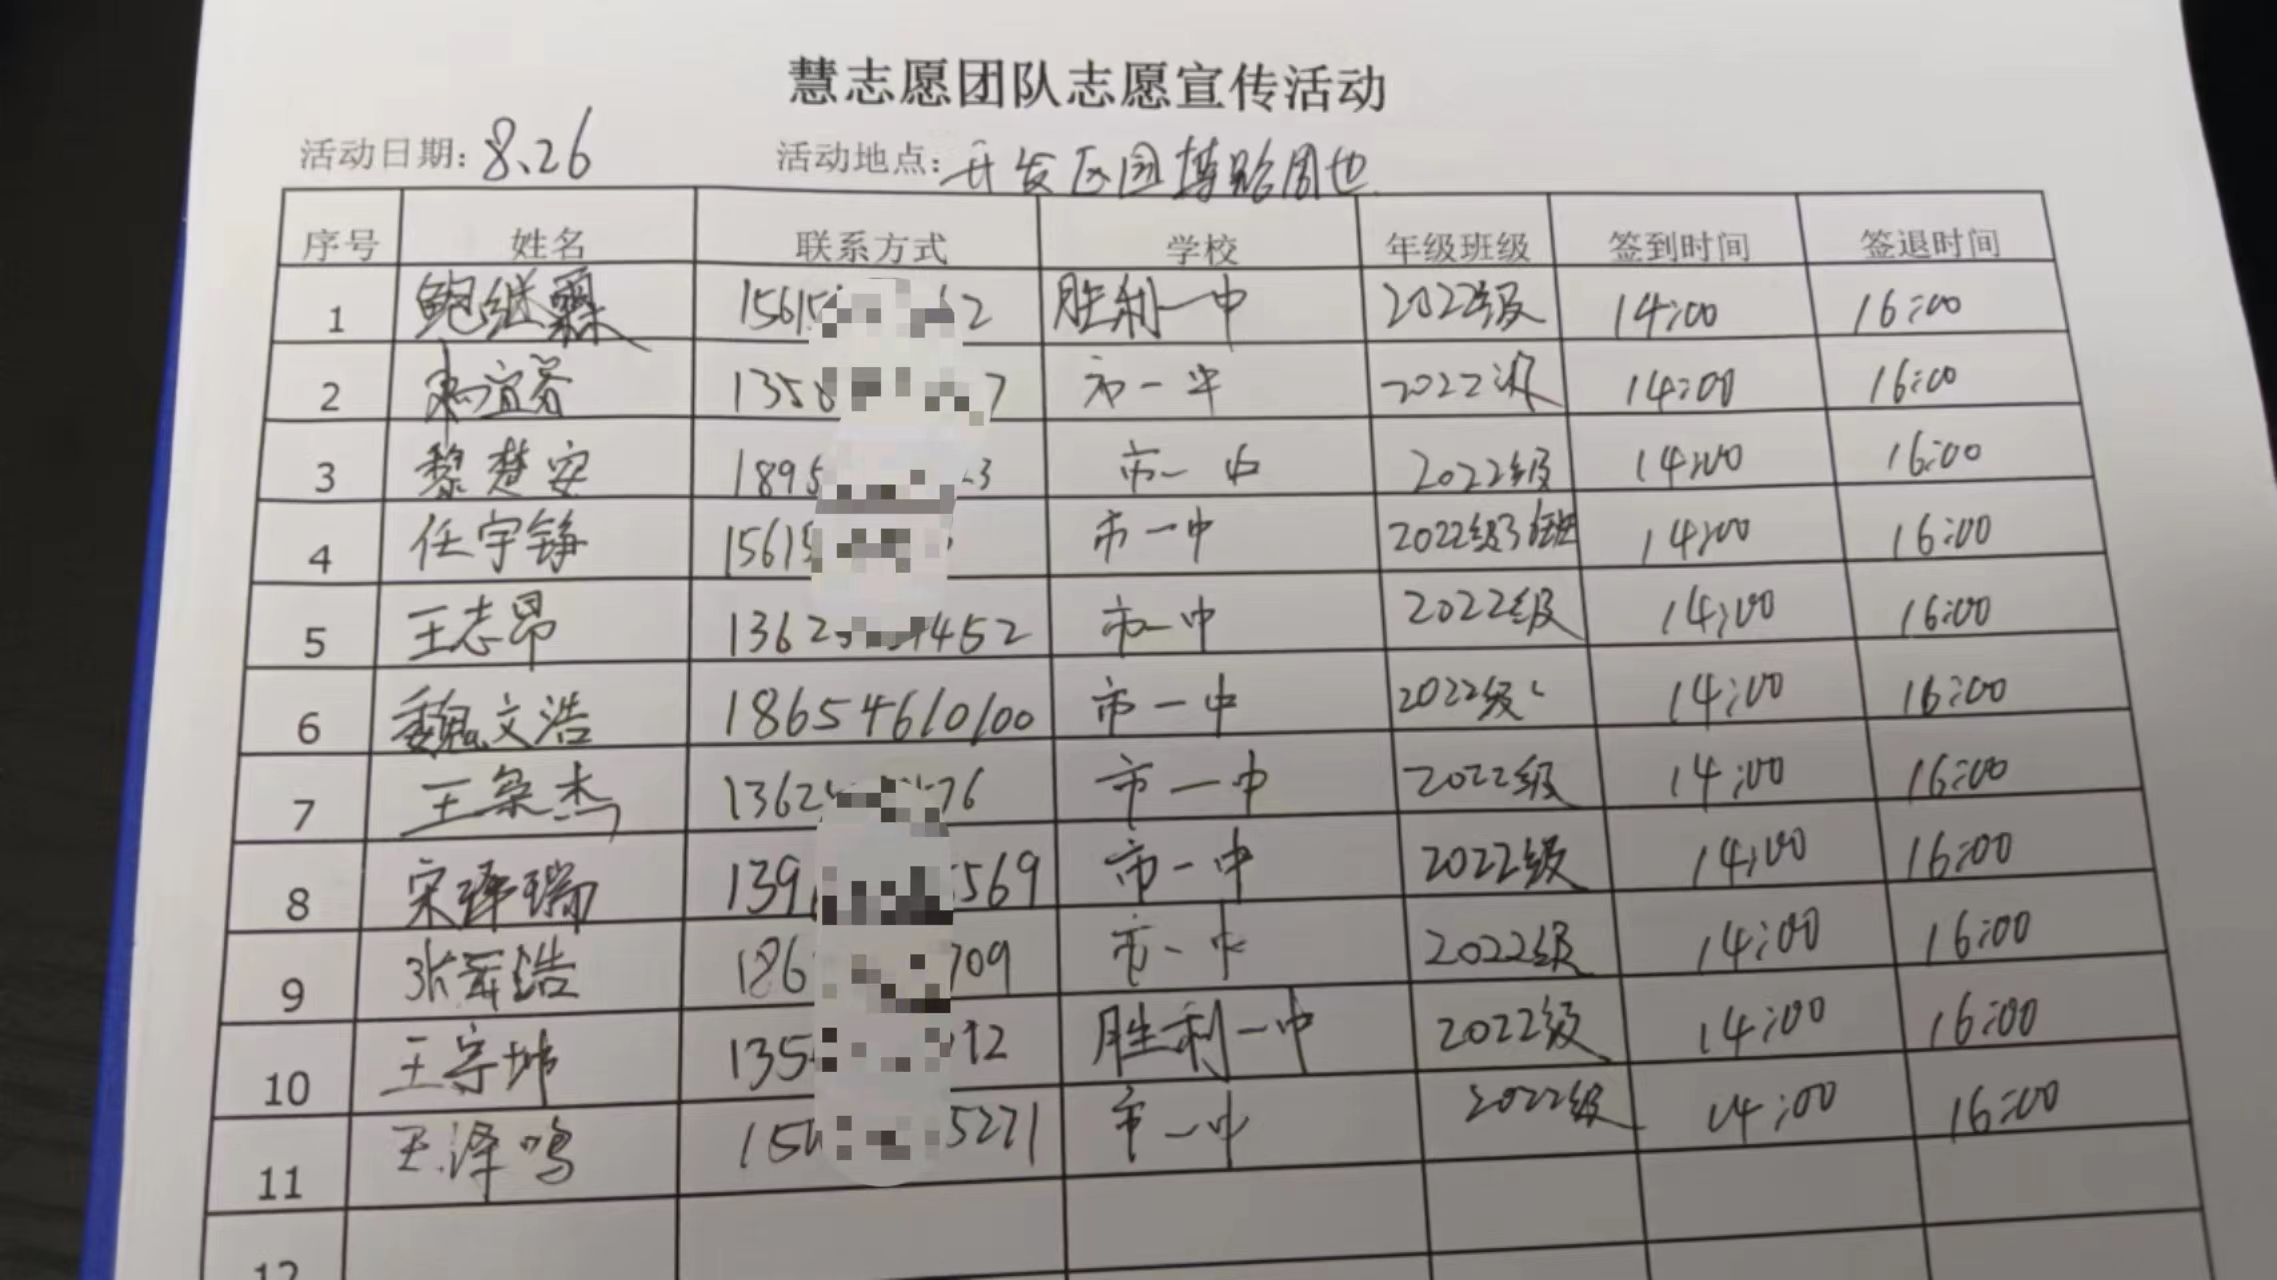 慧志愿团队志愿宣传活动
活动日期：8.26 活动地点：开发区园博路周边
序号 姓名 联系方式 学校 年级班级 签到时间 签退时间
1 鲍继霖 胜利一中 2022级 14:00 16:00
2 市一中 2022级 14:00 16:00
3 黎楚安 市一中 2022级 14:00 16:00
4 任宇铮 市一中 14:00 16:00
5 王志昂 市一中 2022级 14:00 16:00
6 魏文浩 18654610100 市一中 2022级 14:00 16:00
7 市一中 2022级 14:00 16:00
8 宋泽瑞 市一中 2022级 14:00 16:00
9 市一中 2022级 14:00 16:00
10 胜利一中 2022级 14:00 16:00
11 王泽鸣 市一中 2022级 14:00 16:00
12